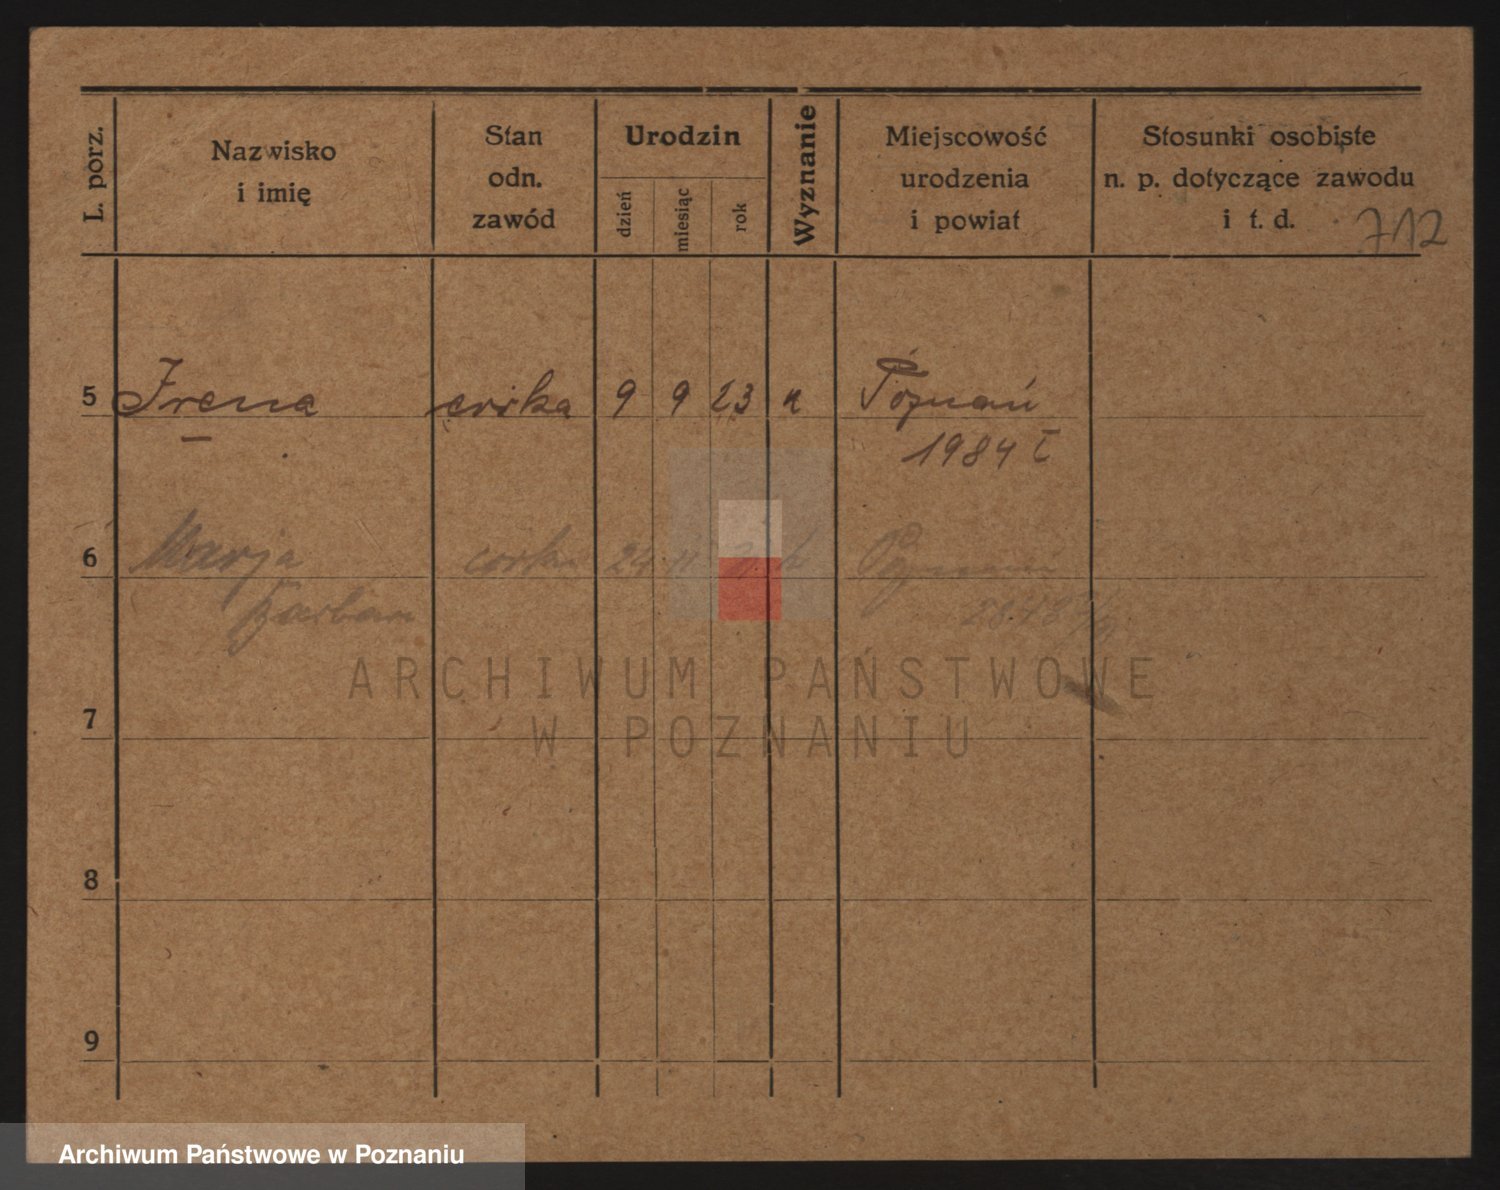 L. porz.
Nazwisko
i imię
Stan
odn.
zawód
Urodzin
dzień
miesiąc
rok
Wyznanie
Miejscowość
urodzenia
i powiat
Stosunki osobiste
n. p. dotyczące zawodu
i t. d.
712
5 Irena córka 9 9 23 k Poznań
1984 I
6 Marja córka 24 11 k Poznań
7
8
9
ARCHIWUM PAŃSTWOWE
W POZNANIU
Archiwum Państwowe w Poznaniu